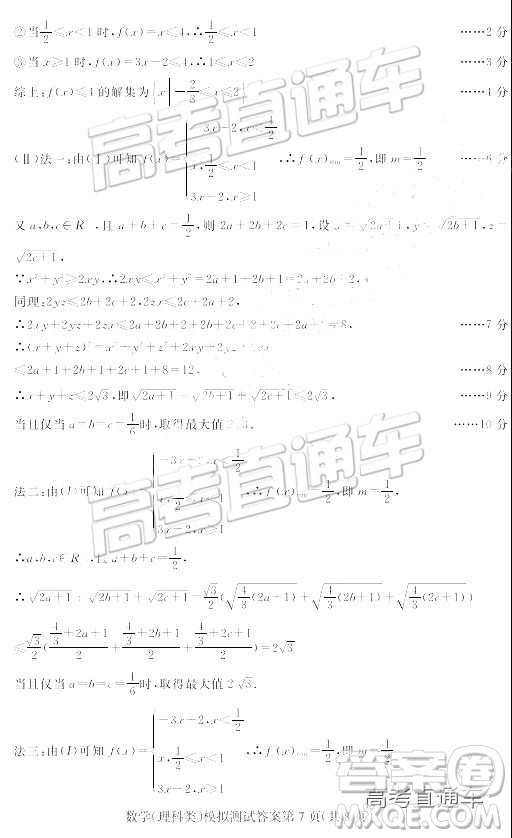 ②当1/2≤x<1时,f(x)=x≤4,∴1/2≤x<1 ……2分
③当x≥1时,f(x)=3x-2≤4,∴1≤x≤2 ……3分
综上:f(x)≤4的解集为{x|-2/3≤x≤2} ……4分
(Ⅱ)法一:由(Ⅰ)可知f(x)={-3x+2,x<1/2 x,1/2≤x<1 3x-2,x≥1 ∴f(x)min=1/2,即m=1/2 ……6分
又a,b,c∈R 且a+b+c=1/2,则2a+2b+2c=1,设x=√2a+1,y=√2b+1,z=
√2c+1,
∵x²+y²≥2xy,∴2xy≤x²+y²=2a+1+2b+1=2a+2b+2,
同理:2yz≤2b+2c+2,2zx≤2c+2a+2,
∴2xy+2yz+2zx≤2a+2b+2+2b+2c+2+2c+2a+2=8, ……7分
∴(x+y+z)²=x²+y²+z²+2xy+2yz+2zx
≤2a+1+2b+1+2c+1+8=12, ……8分
∴x+y+z≤2√3,即√2a+1+√2b+1+√2c+1≤2√3, ……9分
当且仅当a=b=c=1/6时,取得最大值2√3. ……10分
法二:由(Ⅰ)可知f(x)={-3x+2,x<1/2 x,1/2≤x<1 3x-2,x≥1 ∴f(x)min=1/2,即m=1/2,
∴a,b,c∈R 且a+b+c=1/2,
∴√2a+1+√2b+1+√2c+1=√3/2(√4/3(2a+1)+√4/3(2b+1)+√4/3(2c+1))
≤√3/2((4/3+2a+1)/2+(4/3+2b+1)/2+(4/3+2c+1)/2)=2√3
当且仅当a=b=c=1/6时,取得最大值2√3.
法三:由(Ⅰ)可知f(x)={-3x+2,x<1/2 x,1/2≤x<1 3x-2,x≥1 ∴f(x)min=1/2,即m=1/2,
数学(理科类)模拟测试答案第7页(共8页)
高考直通车
高考直通车
高考直通车